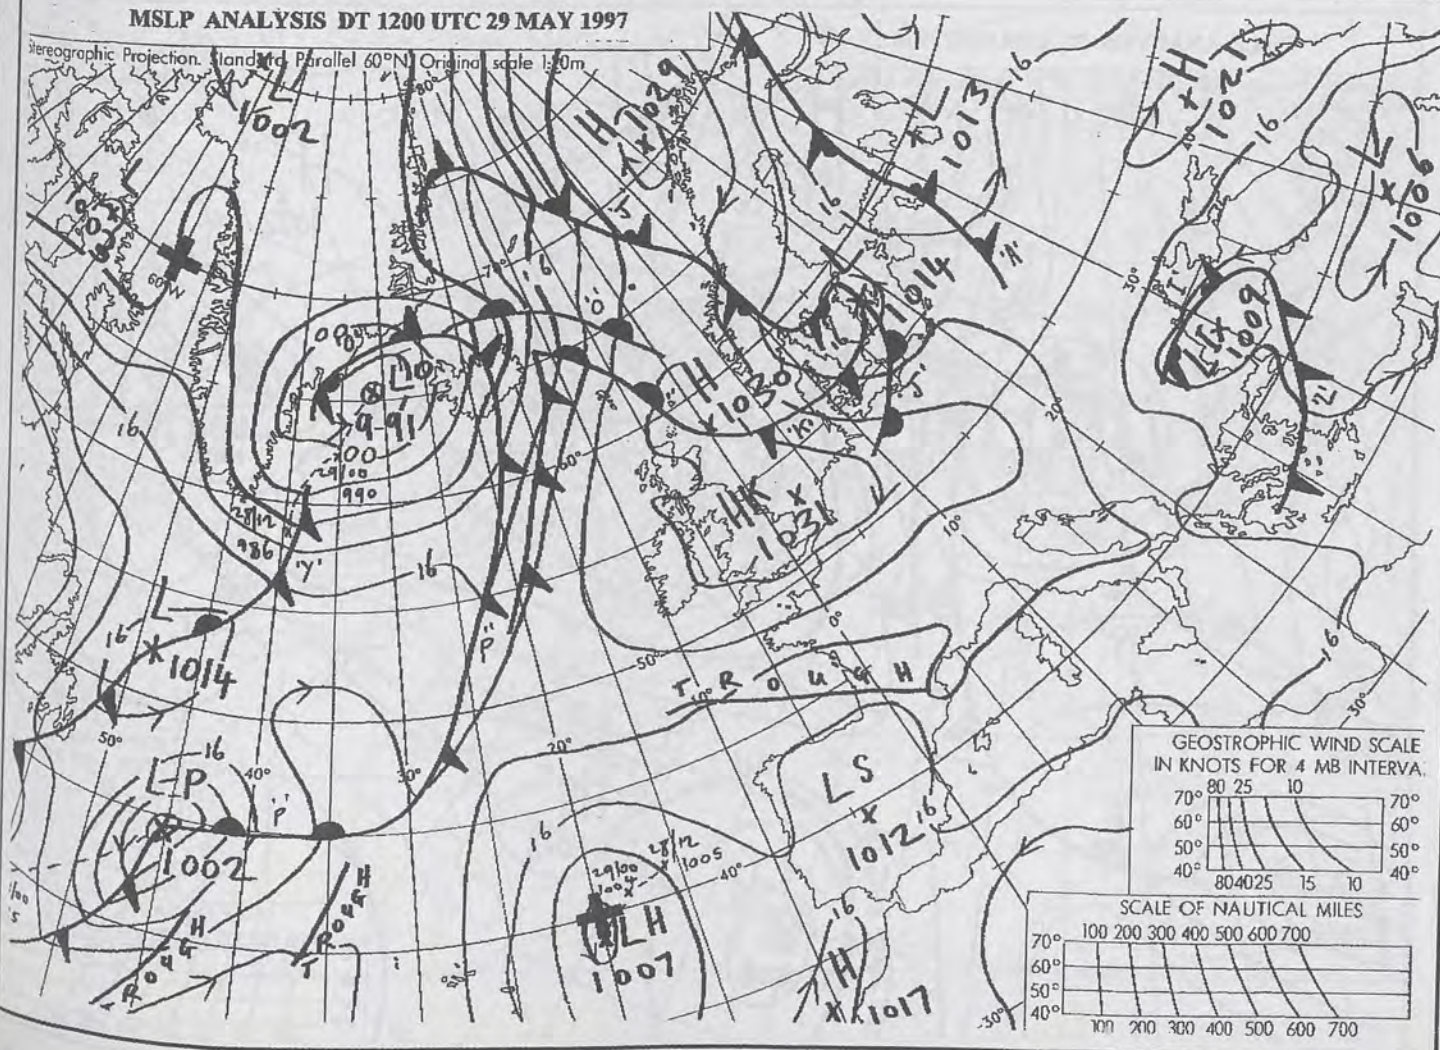 MSLP ANALYSIS DT 1200 UTC 29 MAY 1997
Stereographic Projection. Standard Parallel 60°N. Original scale 1:20m
L
1002
80°
H
1029
L
1013
16
H
1021
16
40°
L
1006
60°W
70°
16
'O'
16
'A'
1014
30°
L
1009
'Z'
20°
LO
991
00
29/00
990
28/12
986
'Y'
16
H
1030
'J'
60°
10°
HK
1031
16
0°
L
1014
16
50°
'P'
50°
10°
TROUGH
16
30°
20°
16
L-P
40°
'P'
30°
1002
LS
1012
16
16
28/12
1005
29/00
1004
40°
LH
1007
TROUGH
TROUGH
16
H
1017
30°
GEOSTROPHIC WIND SCALE
IN KNOTS FOR 4 MB INTERVA
80 25 10
70° 70°
60° 60°
50° 50°
40° 40°
80 40 25 15 10
SCALE OF NAUTICAL MILES
100 200 300 400 500 600 700
70° 70°
60° 60°
50° 50°
40° 40°
100 200 300 400 500 600 700